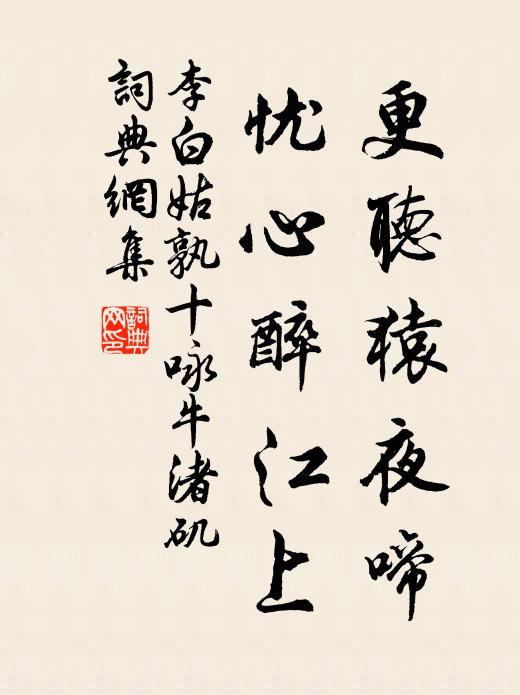 更聽猿夜啼
忧心醉江上
李白姑孰十咏牛渚矶
詞典網集
詞典
网印